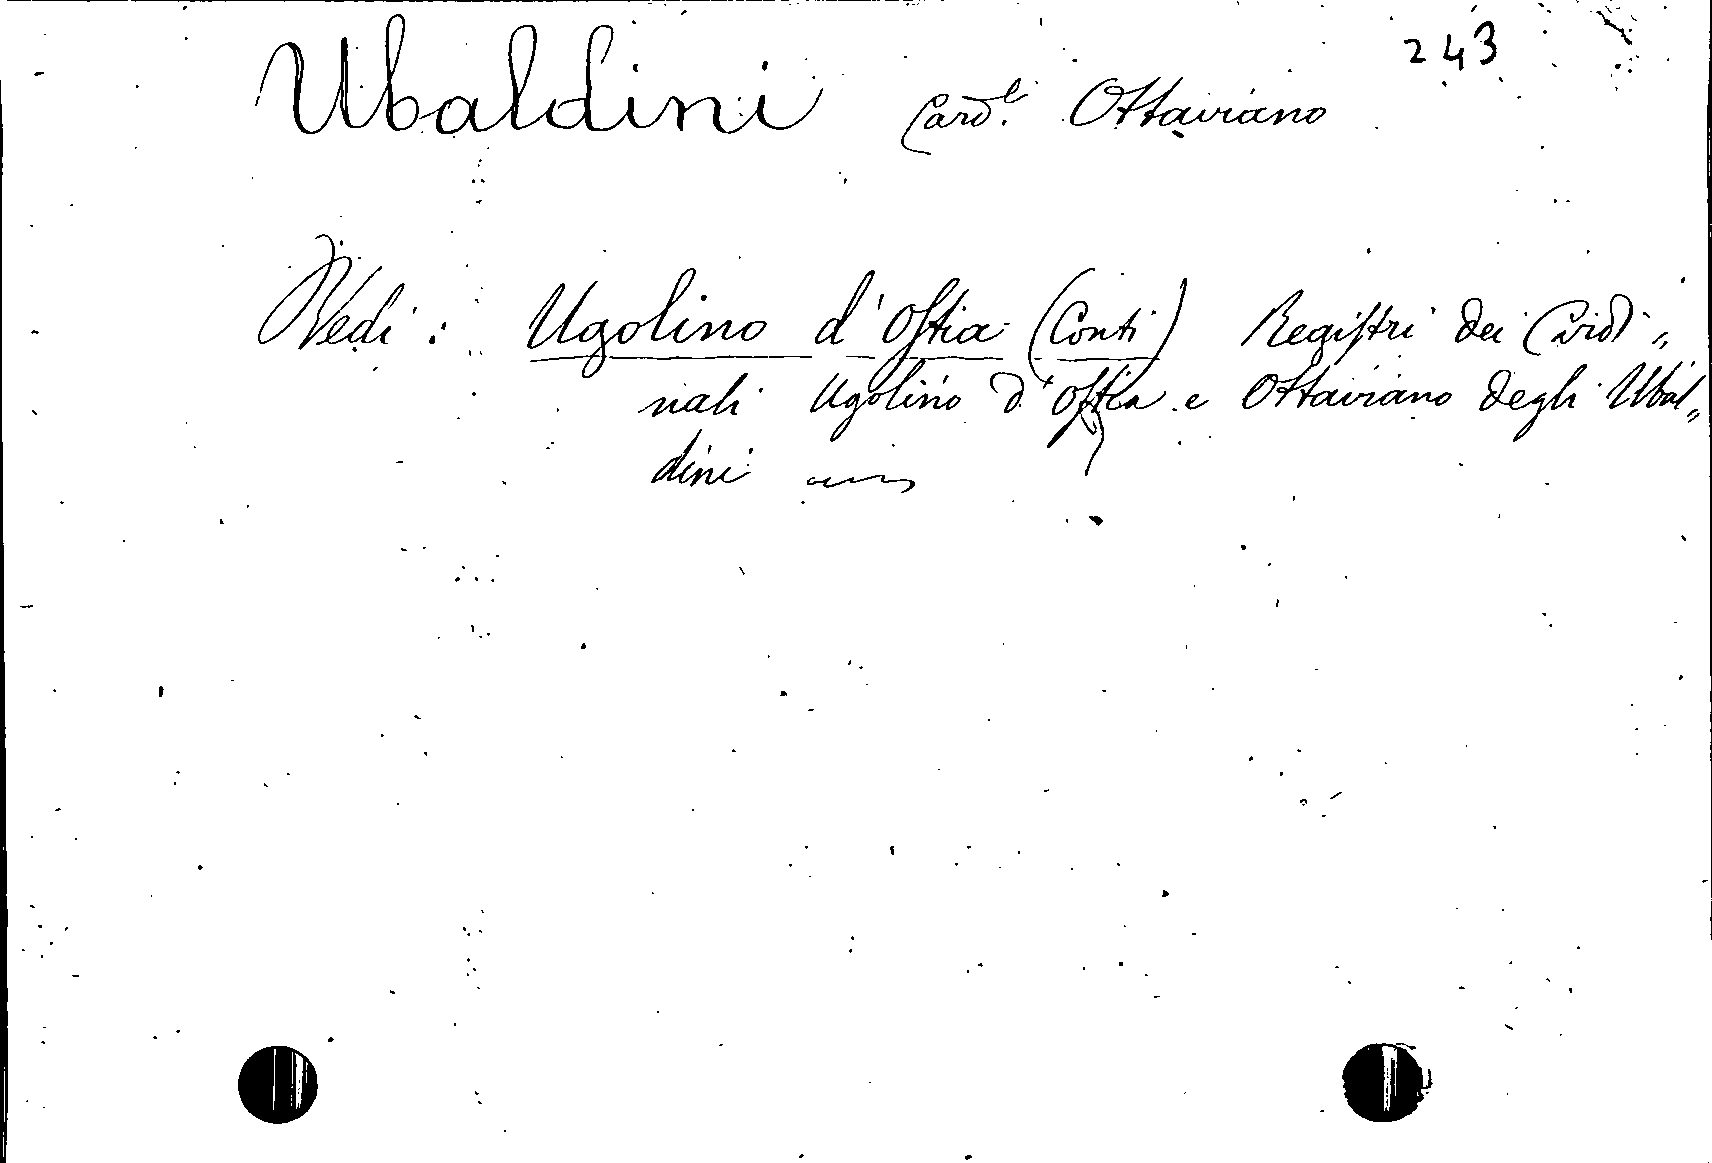 243
Ubaldini Card.l Ottaviano
Vedi: Ugolino d'Ostia (Conti) Registri dei Cardi„
nali Ugolino d'Ostia e Ottaviano degli Ubal„
dini